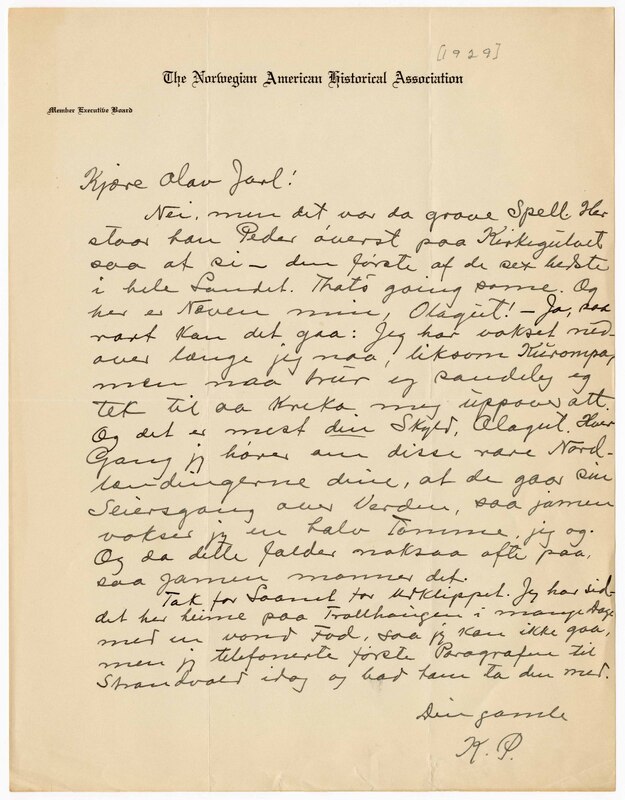 [1929]
The Norwegian American Historical Association
Member Executive Board
Kjære Olav Jarl!
Nei, men det var da grove Spell. Her
staar han Peder øverst paa Kirkegulvet
saa at si — den første af de sex bedste
i hele Landet. Thats going some. Og
her er Næven min, Olagut! — Ja, saa
rart kan det gaa: Jeg har vokset ned-
over længe jeg naa, liksom Kurompa,
men naa trur eg sandeleg eg
tek til aa kreka meg uppover att.
Og det er mest din Skyld, Olagut. Hver
Gang jeg hører om disse rare Nord-
lændingerne dine, at de gaar sin
Seiersgang over Verden, saa jamen
vokser jeg en halv Tomme, jeg og.
Og da dette falder noksaa ofte paa,
saa jamen monner det.
Tak for Laanet for Udklippet. Jeg har sid-
det her heime paa Trollhaugen i mange Dage
med en vond Fod, saa jeg kan ikke gaa,
men jeg telefonerte første Paragrafen til
Strandvold idag og bad ham ta den med.
Din gamle
K. P.